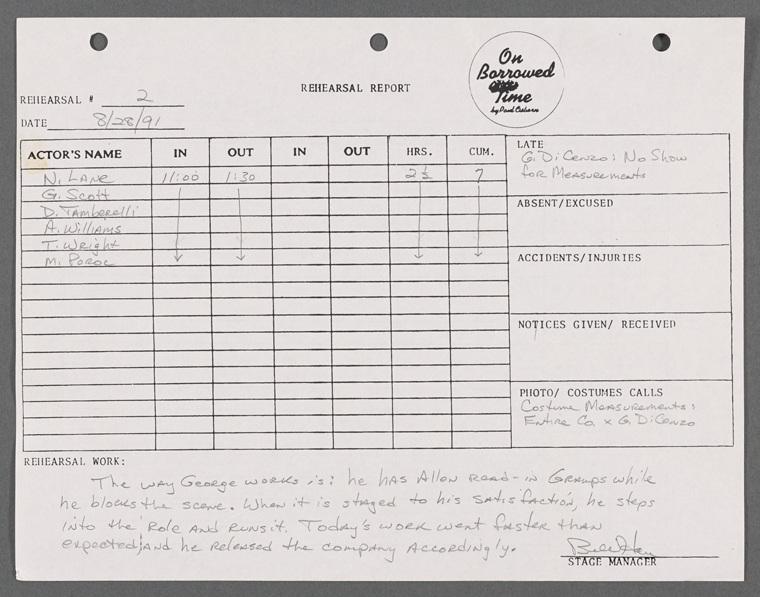 On
Borrowed
Time
by Paul Osborn
REHEARSAL REPORT
REHEARSAL # 2
DATE 8/28/91
ACTOR'S NAME IN OUT IN OUT HRS. CUM.
N. LANE 11:00 1:30 2½ 7
G. Scott
D. Tamberelli
A. Williams
T. Wright
M. Poroc
LATE
G. DiCenzo: No Show
for Measurements
ABSENT/EXCUSED
ACCIDENTS/INJURIES
NOTICES GIVEN/ RECEIVED
PHOTO/ COSTUMES CALLS
Costume Measurements:
Entire Co. x G. DiCenzo
REHEARSAL WORK:
The way George works is: he has Allen read-in Gramps while
he blocks the scene. When it is staged to his satisfaction, he steps
into the Role and runs it. Today's work went faster than
expected, and he released the company accordingly.
STAGE MANAGER